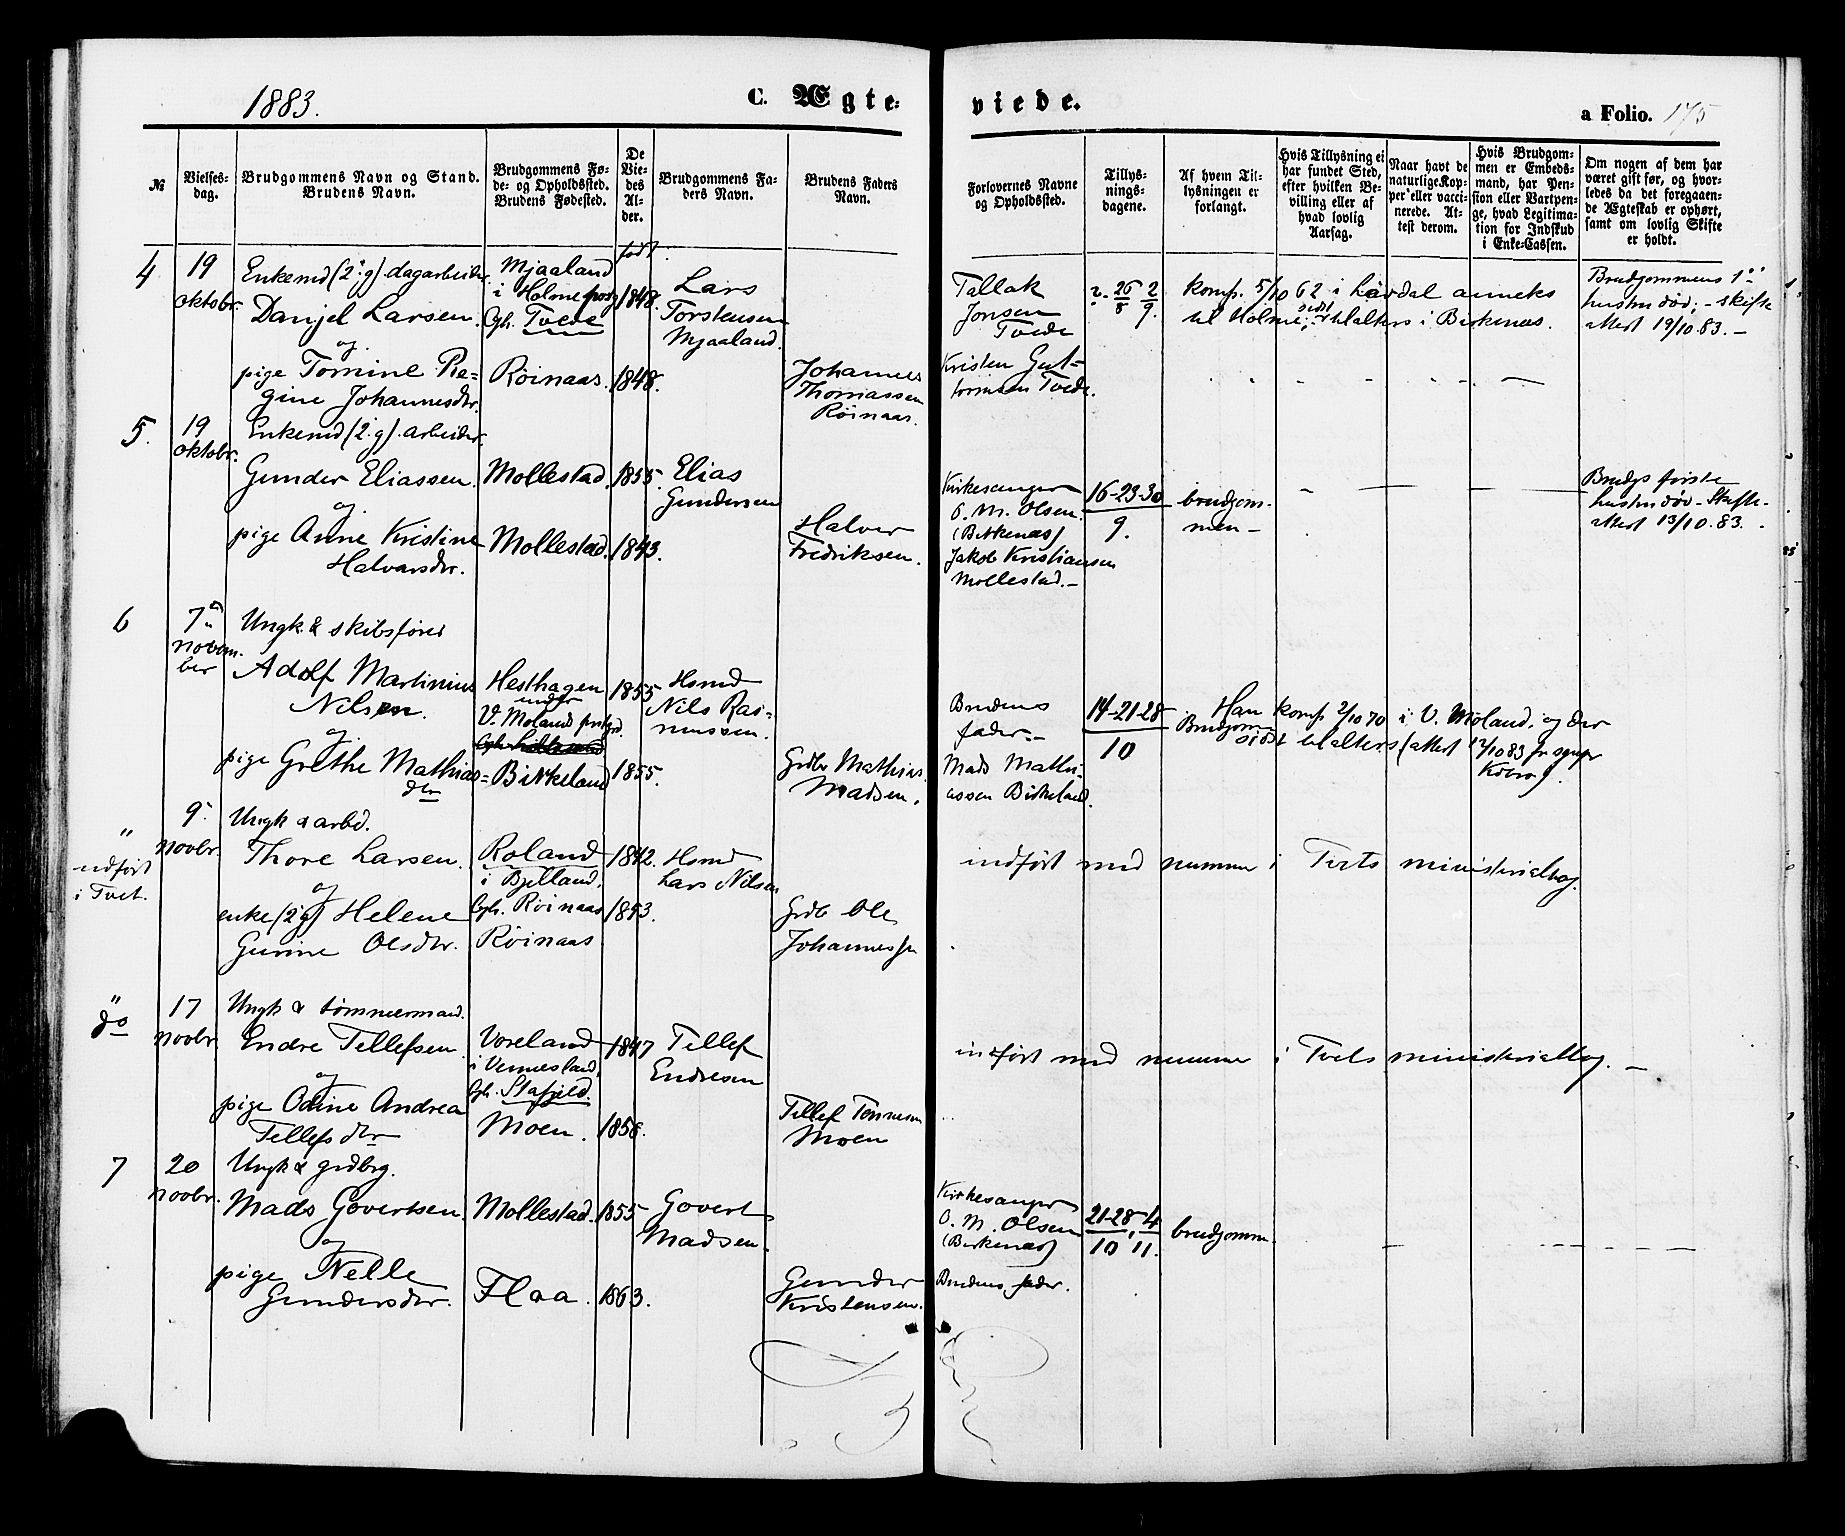 1883.
C. Ægte-
viede.
a Folio. 175
№
Vielses-
dag.
Brudgommens Navn og Stand.
Brudens Navn.
Brudgommens Fø-
de- og Opholdssted.
Brudens Fødested.
De
Vie-
des
Al-
der.
Brudgommens Fa-
ders Navn.
Brudens Faders
Navn.
Forlovernes Navne
og Opholdssted.
Tillys-
nings-
dagene.
Af hvem Til-
lysningen er
forlangt.
Hvis Tillysning ei
har fundet Sted,
efter hvilken Be-
villing eller af
hvad lovlig
Aarsag.
Naar havt de
naturlige Kop-
per eller vacci-
nerede. At-
test derom.
Hvis Brudgom-
men er Embeds-
mand, har Pen-
sion eller Vartpen-
ge, hvad Legitima-
tion for Indskud
i Enke-Cassen.
Om nogen af dem har
været gift før, og hvor-
ledes da det foregaaen-
de Ægteskab er ophørt,
samt om lovlig Skifte
er holdt.
født.
4
19
oktobr.
Enkemd (2. g) dagarbeider
Danjel Larsen.
og
pige Tomine Re-
gine Johannesdtr.
Mjaaland
i Holme prstg
Oph. Tvede
Røinaas.
1848.
1848.
Lars
Torstensen
Mjaaland.
Johannes
Thomassen
Røinaas.
Tallak
Jonsen
Tvede
Kristen Gut-
tormsen Tvede.
26/8 2/9.
komf. 5/10 62 i Løvdal anneks
til Holme; sidst til alters i Birkenæs.
Brudgommens 1ste
hustru død; - skifte
attest 19/10.83.-
5.
19
oktobr.
Enkemd (2. g). arbeider
Gunder Eliassen.
og
pige Anne Kristine
Halvorsdtr.
Mollestad.
Mollestad.
1855.
1843.
Elias
Gundersen
Halvor
Fredriksen.
Kirkesanger
O. M. Olsen.
(Birkenæs)
Jakob Kristiansen
Mollestad.-
16-23-30
9.
brudgom-
men -
Brudgs første
hustru død - Skifte-
attest 13/10.83.
6
7de
novem-
ber
Ungk. & skibsfører
Adolf Martinius
Nilsen.
og
pige Grethe Mathias-
dtr
Hesthagen
under
V. Moland prstgd.
Birkeland
1855
1855.
Hsmd
Nils Ras-
mussen.
Grdbr Mathias
Madsen.
Brudens
fader.-
Mads Mathi-
assen Birkeland.
14-21-28
10
Brudgom
Han komf 2/10 70 i V. Moland. og der
sidst til alters (attest 12/10 83 fr sgnpr
"
udført
i Tvet.
9.
novbr.
Ungk & arbd.
Thore Larsen.
og
enke (2 g) Helene
Gurine Olsdtr.
Roland
i Bjelland.
Oph. Røinaas
Røinaas
1842.
1853.
Hsmd
Lars Nilsen
Grdbr Ole
Johannessn
indført med nummer i Tvets ministerialbog.
"
do
17
novbr.
Ungk & tømmermand.
Endre Tellefsen.
og
pige Odine Andrea
Tellefsdtr
Voreland
i Vennesland,
Oph. Stafjeld.
Moen.
1847
1858.
Tellef
Endresen
Tellef Tønnesen
Moen
indført med nummer i Tvets ministerialbog. -
7
20
novbr.
Ungk & grdbrg.
Mads Govertsen.
og
pige Nelle
Gundersdtr.
Mollestad.
Flaa.
1855
1863.
Govert
Madsen.
Gunder
Kristensen.
Kirkesanger
O. M. Olsen
(Birkenæs)
Brudens fader.
21-28, 4
10 11.
brudgomm.